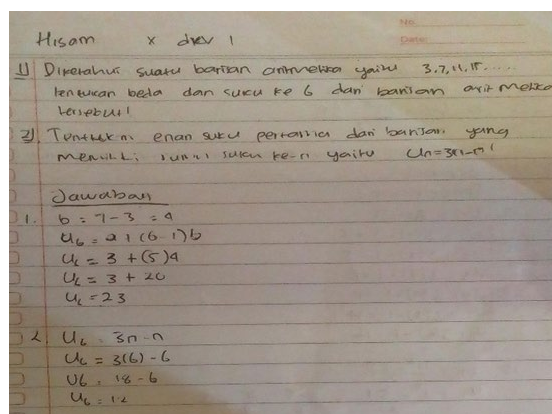 No.
Date:
Hisam x dkv 1
1) Diketahui suatu barisan aritmetika yaitu 3,7,11,15.....
tentukan beda dan suku ke 6 dari barisan aritmetika
tersebut!
2) Tentukn enam suku pertama dari barisan yang
memiliki suku ke-n yaitu Un=3n-n
Jawaban
1. b = 7-3 = 4
U6 = a + (6-1)b
U6 = 3 + (5)4
U6 = 3 + 20
U6 = 23
2. U6 = 3n-n
U6 = 3(6)-6
U6 = 18-6
U6 = 12